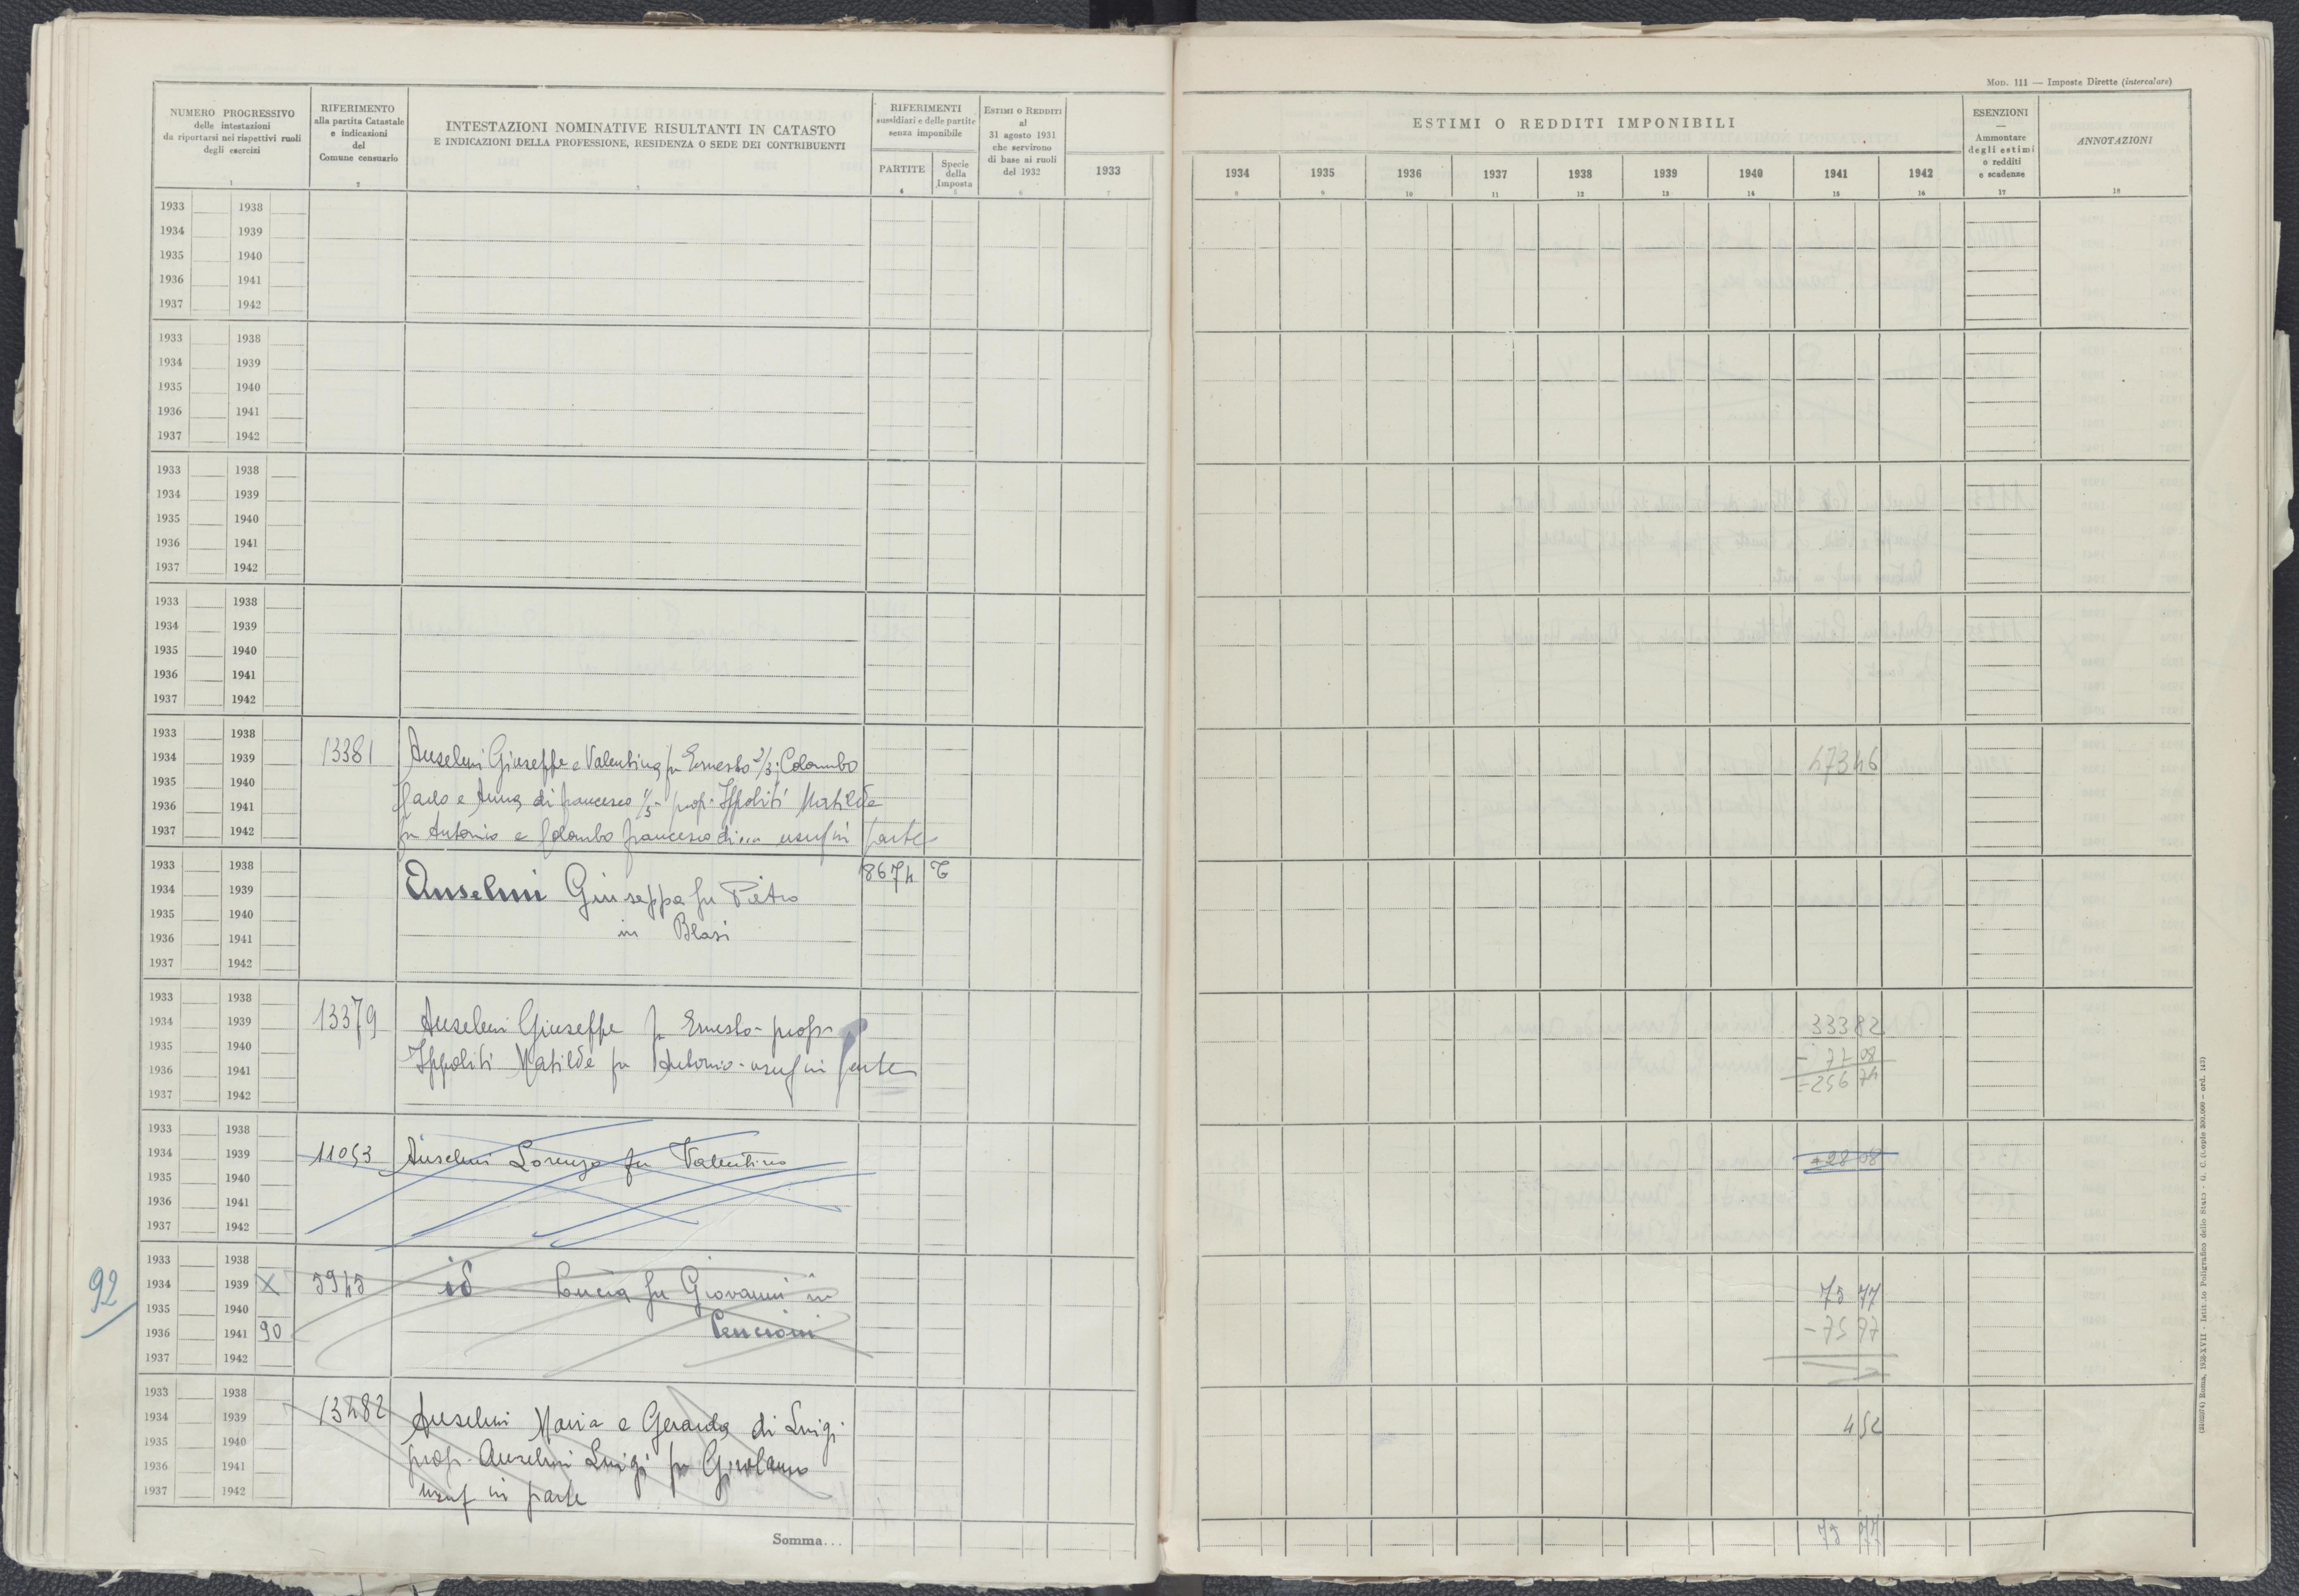 Mod. 111 — Imposte Dirette (intercalare)
NUMERO PROGRESSIVO
delle intestazioni
da riportarsi nei rispettivi ruoli
degli esercizi
1
RIFERIMENTO
alla partita Catastale
e indicazioni
del
Comune censuario
2
INTESTAZIONI NOMINATIVE RISULTANTI IN CATASTO
E INDICAZIONI DELLA PROFESSIONE, RESIDENZA O SEDE DEI CONTRIBUENTI
3
RIFERIMENTI
sussidiari e delle partite
senza imponibile
PARTITE
4
Specie
della
Imposta
5
Estimi o Redditi
al
31 agosto 1931
che servirono
di base ai ruoli
del 1932
6
1933
7
ESTIMI O REDDITI IMPONIBILI
1934 1935 1936 1937 1938 1939 1940 1941 1942
8 9 10 11 12 13 14 15 16
ESENZIONI
—
Ammontare
degli estimi
o redditi
e scadenze
17
ANNOTAZIONI
18
1933 1938
1934 1939
1935 1940
1936 1941
1937 1942
1933 1938
1934 1939
1935 1940
1936 1941
1937 1942
1933 1938
1934 1939
1935 1940
1936 1941
1937 1942
1933 1938
1934 1939
1935 1940
1936 1941
1937 1942
1933 1938
1934 1939 13381 Anselmi Giuseppe e Valentina fu Ernesto 2/3; Colombo 473 46
1935 1940
1936 1941 e Anna di Francesco 1/3 - prop. Ippoliti Matilde
1937 1942 fu Antonio e Colombo Francesco di... usuf in parte
1933 1938 8674 T
1934 1939 Anselmi Giuseppa fu Pietro
1935 1940
1936 1941 in Blasi
1937 1942
1933 1938
1934 1939 13379 Anselmi Giuseppe fu Ernesto - prop - 333 82
1935 1940 - 77 08
1936 1941 Ippoliti Matilde fu Antonio - usuf in parte 256 74
1937 1942
1933 1938
1934 1939 11053 Anselmi Lorenzo fu Valentino 28 08
1935 1940
1936 1941
1937 1942
1933 1938
92 1934 1939 X 5945 id Lucia fu Giovanni in 75 77
1935 1940
1936 1941 90 Pencioni - 75 77
1937 1942
1933 1938
1934 1939 13482 Anselmi Maria e Gerarda di Luigi 4 52
1935 1940
1936 1941 prop. Anselmi Luigi fu Girolamo
1937 1942 usuf in parte
Somma... 75 77
(2102074) Roma, 1938-XVII - Istituto Poligrafico dello Stato - G. C. (Copie 300.000 - ord. 143)